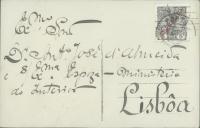 Exmo
Snr
Dr. Antº José d'Almeida
e Exma Espoza
Ministerio
do Interior
Lisbôa